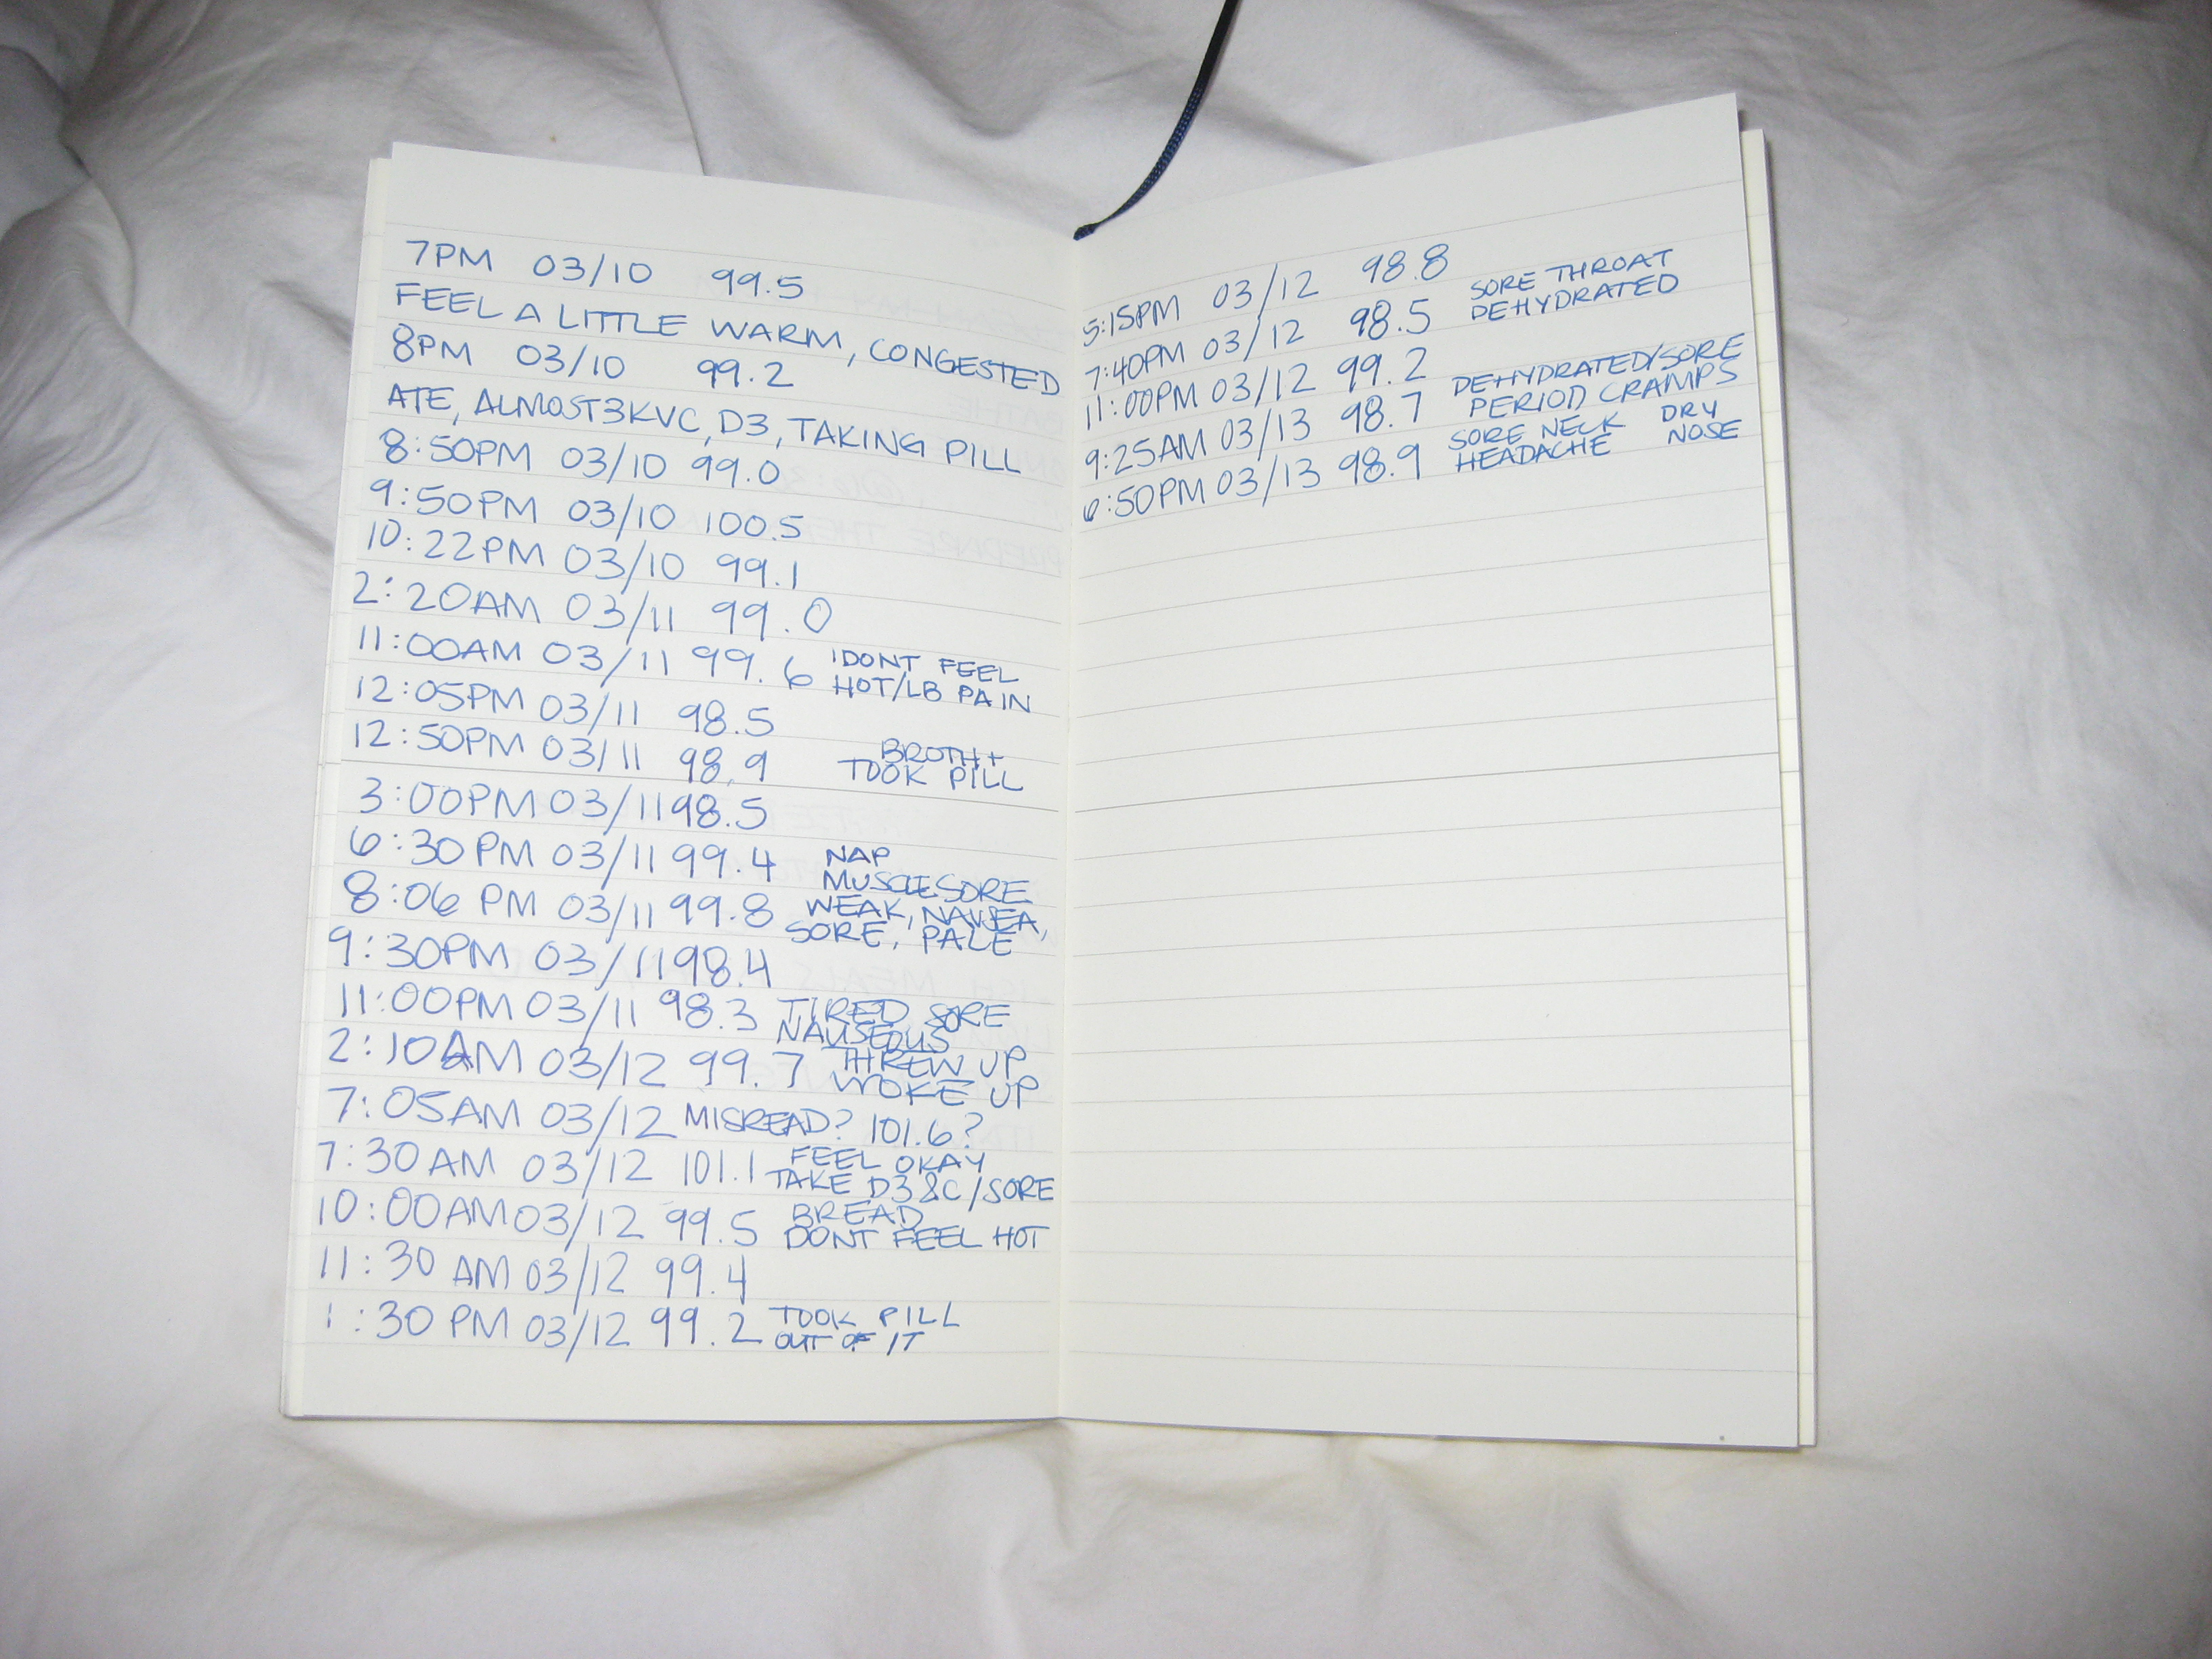 7PM 03/10 99.5
FEEL A LITTLE WARM, CONGESTED
8PM 03/10 99.2
ATE, ALMOST3KVC, D3, TAKING PILL
8:50PM 03/10 99.0
9:50PM 03/10 100.5
10:22PM 03/10 99.1
2:20AM 03/11 99.0
11:00AM 03/11 99.6 IDONT FEEL
HOT/LB PAIN
12:05PM 03/11 98.5
12:50PM 03/11 98.9 BROTH+
TOOK PILL
3:00PM 03/11 98.5
6:30PM 03/11 99.4 NAP
MUSCLE SORE
8:06 PM 03/11 99.8 WEAK, NAUSEA,
SORE, PALE
9:30PM 03/11 98.4
11:00PM 03/11 98.3 TIRED SORE
NAUSEOUS
2:10AM 03/12 99.7 THREW UP
WOKE UP
7:05AM 03/12 MISREAD? 101.6?
7:30AM 03/12 101.1 FEEL OKAY
TAKE D3 &C/SORE
10:00AM 03/12 99.5 BREAD
DONT FEEL HOT
11:30 AM 03/12 99.4
1:30 PM 03/12 99.2 TOOK PILL
OUT OF IT
5:15PM 03/12 98.8
7:40PM 03/12 98.5 SORE THROAT
DEHYDRATED
11:00PM 03/12 99.2
9:25AM 03/13 98.7 DEHYDRATED/SORE
PERIOD CRAMPS
6:50PM 03/13 98.9 SORE NECK DRY
HEADACHE NOSE